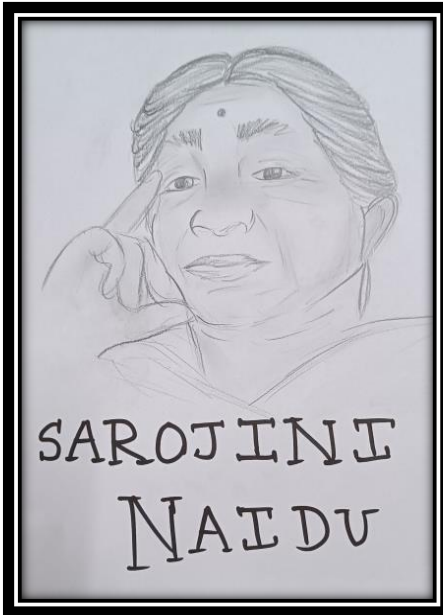 SAROJINI
NAIDU